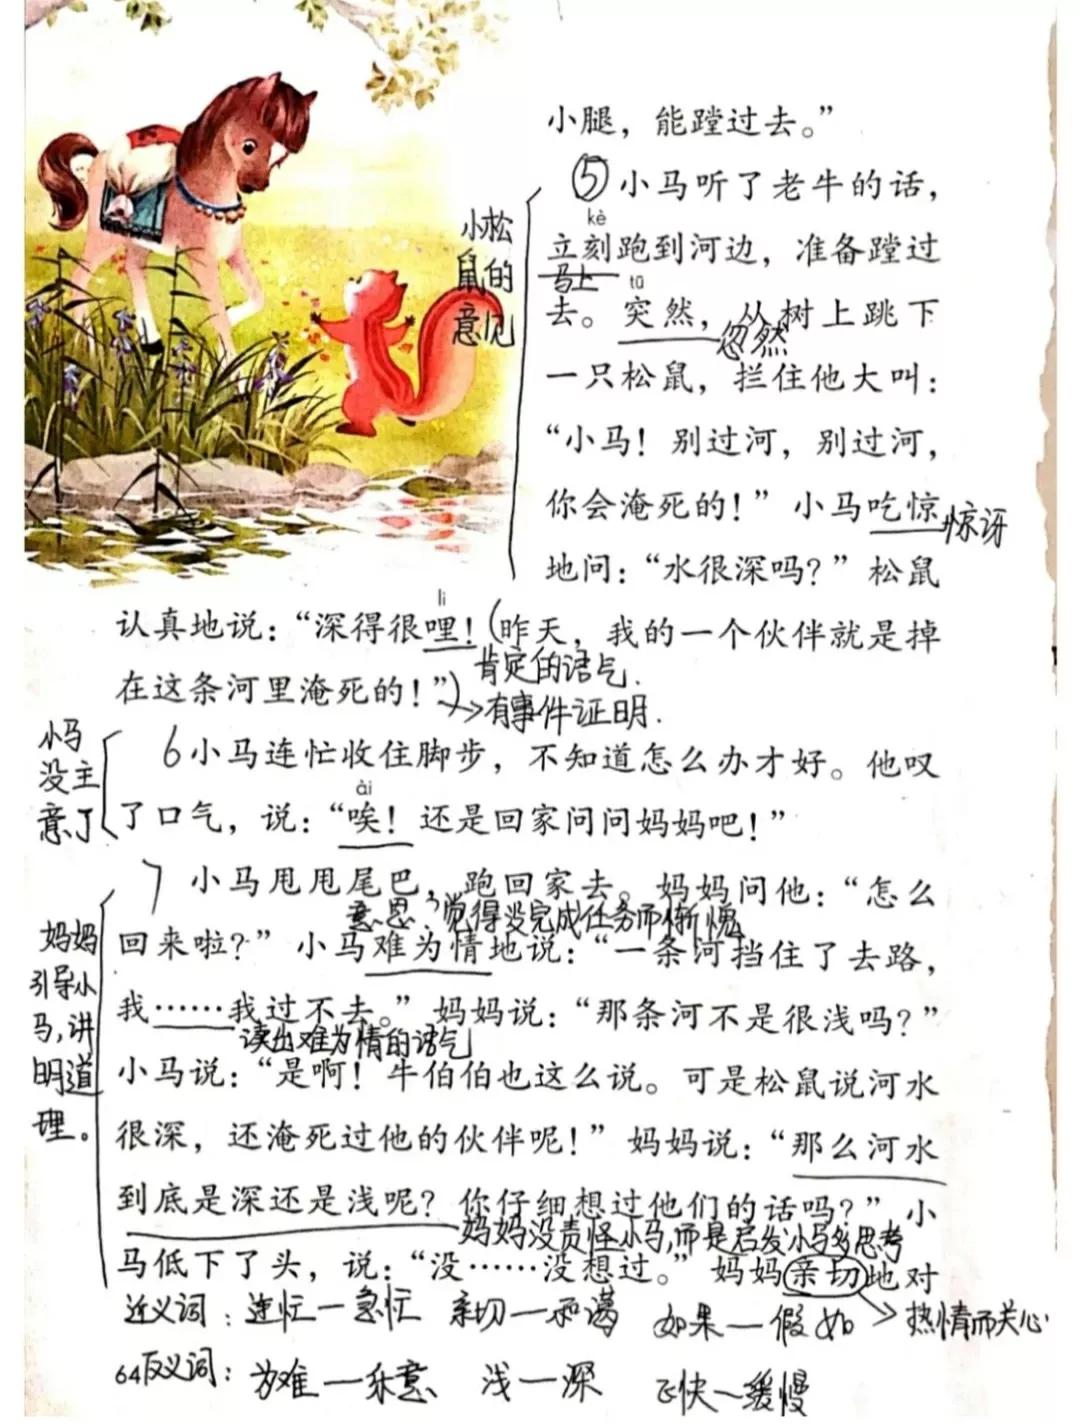 小腿，能蹚过去。”
⑤小马听了老牛的话，
kè
立刻跑到河边，准备蹚过
马上
tū
去。突然，从树上跳下
忽然
一只松鼠，拦住他大叫：
“小马！别过河，别过河，
你会淹死的！”小马吃惊
惊讶
地问：“水很深吗？”松鼠
小松
鼠的
意见
li
认真地说：“深得很哩！(昨天，我的一个伙伴就是掉
肯定的语气.
在这条河里淹死的！”)
→有事件证明.
小马
没主
意了
6小马连忙收住脚步，不知道怎么办才好。他叹
ài
了口气，说：“唉！还是回家问问妈妈吧！”
7小马甩甩尾巴，跑回家去。妈妈问他：“怎么
意思:觉得没完成任务而惭愧
回来啦？”小马难为情地说：“一条河挡住了去路，
妈妈
引导小
马,讲
明道
理。
我……我过不去。”妈妈说：“那条河不是很浅吗？”
读出难为情的语气
小马说：“是啊！牛伯伯也这么说。可是松鼠说河水
很深，还淹死过他的伙伴呢！”妈妈说：“那么河水
到底是深还是浅呢？你仔细想过他们的话吗？”小
妈妈没责怪小马,而是启发小马多思考
马低下了头，说：“没……没想过。”妈妈亲切地对
→热情而关心
近义词：连忙—急忙 亲切—和蔼 如果—假如
64
反义词：为难—乐意 浅—深 飞快—缓慢